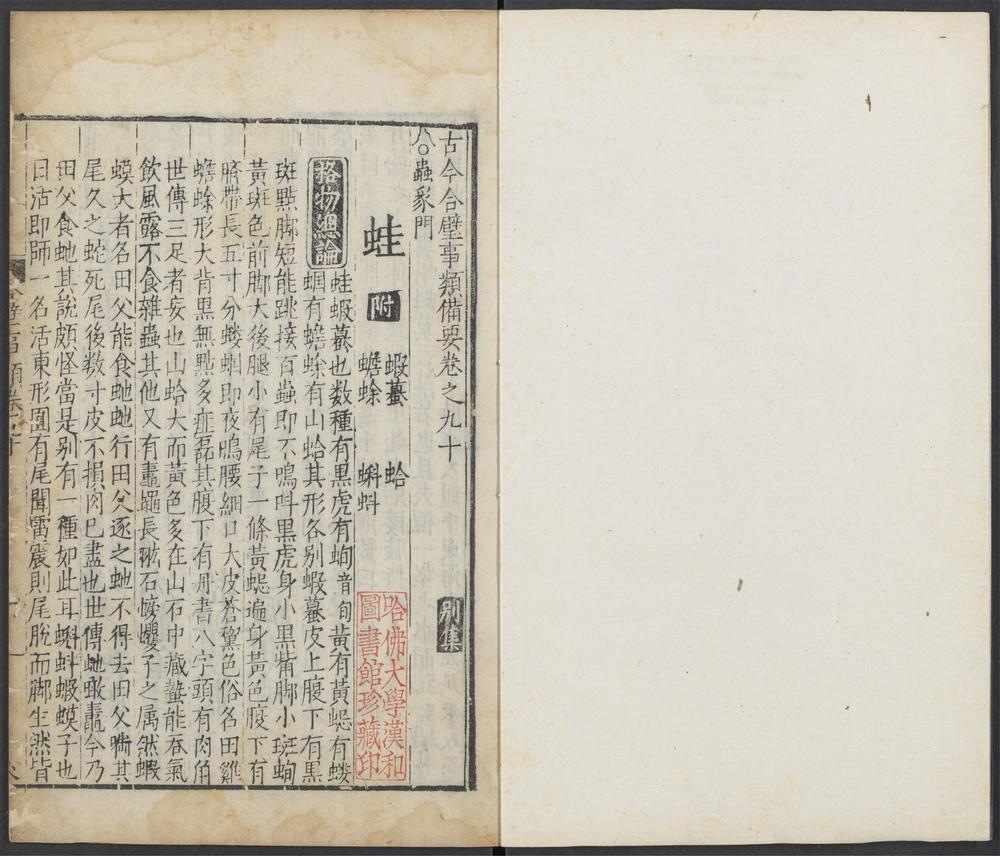 古今合璧事類備要卷之九十
別集
○蟲豸門
蛙 附 蝦蟇 蛤
蟾蜍 蝌蚪
哈佛大學漢和
圖書館珍藏印
格物總論 蛙蝦蟇也数種有黒虎有蚼音旬黃有黃𧋍有螻
蝈有蟾蜍有山蛤其形各别蝦蟇皮上腹下有黒
斑㸃脚短能跳接百蟲即不鳴呌黒虎身小黒觜脚小斑蚼
黃斑色前脚大後腿小有尾子一條黃𧋍遍身黃色腹下有
臍帶長五寸分螻蝈即夜鳴腰細口大皮蒼黧色俗名田雞
蟾蜍形大背黒無㸃多痱磊其腹下有丹書八字頭有肉角
世傳三足者妄也山蛤大而黃色多在山石中藏蟄能吞氣
飲風露不食雜蟲其他又有鼃黽長䏿石
子之属然蝦
蟆大者名田父能食虵虵行田父逐之虵不得去田父㗸其
尾久之蛇死尾後数寸皮不損肉已盡也世傳虵噉鼃今乃
田父食虵其說頗怪當是别有一種如此耳蝌蚪蝦蟆子也
曰活即師一名活東形圎有尾聞雷震則尾脫而脚生然皆